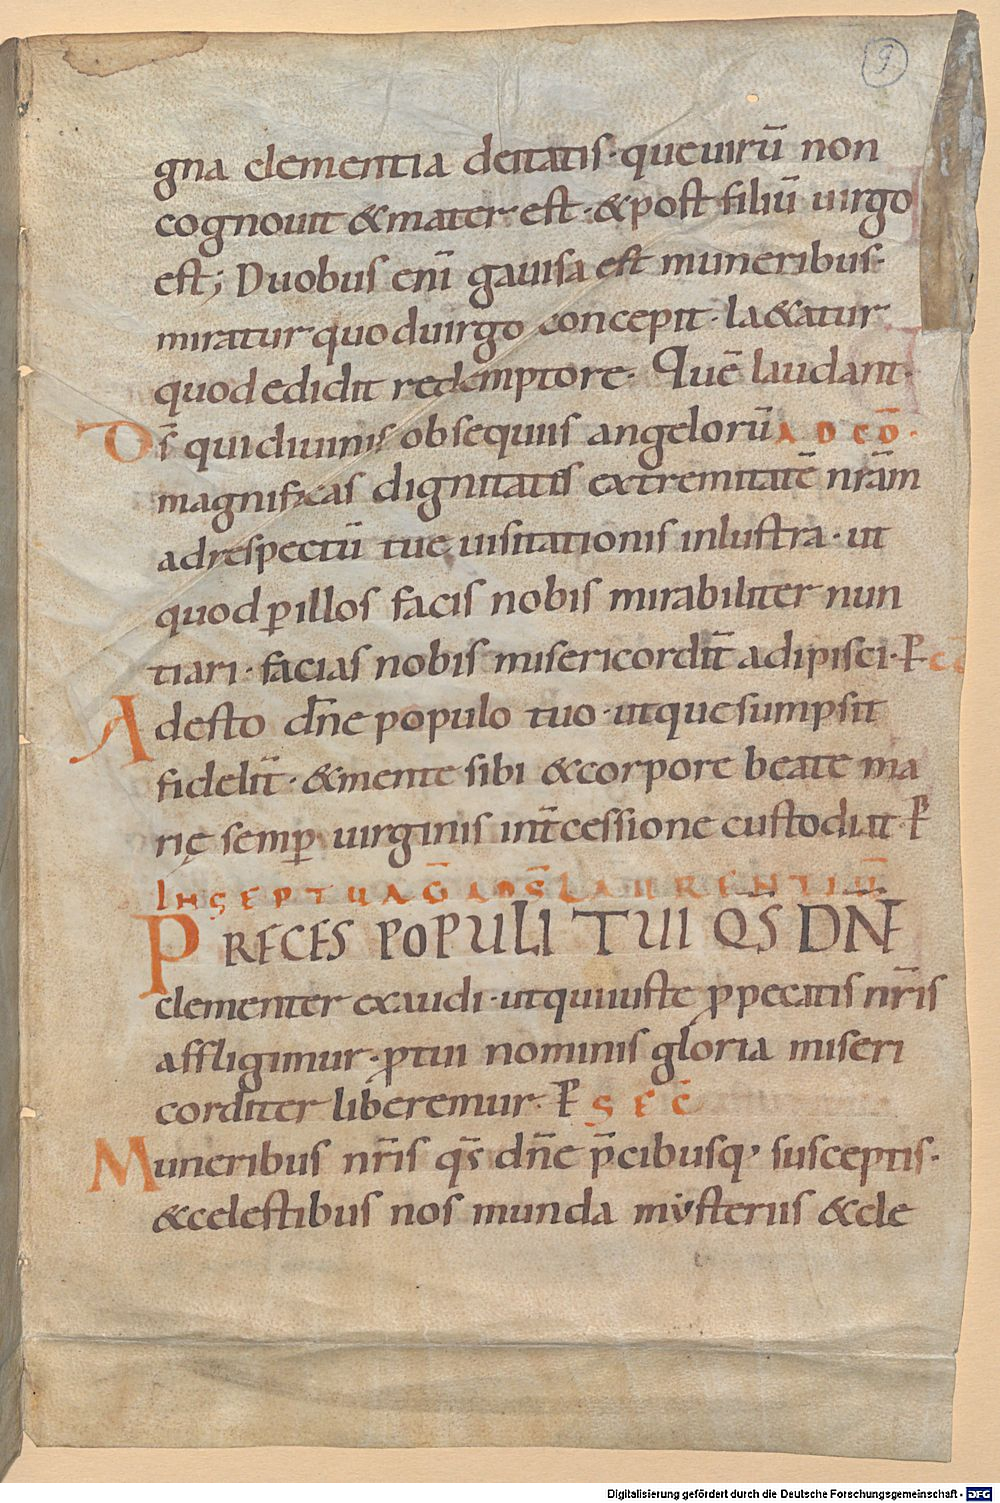 9
gna clementia deitatis · que uirū non
cognouit & mater est · & post filiū uirgo
est; Duobus enī gauisa est muneribus·
miratur quod uirgo concepit · la&atur
quod edidit redemptore· Quē laudant·
Ds̄ qui diuinis obsequiis angelorū AD CŌ·
magnificas dignitatis extremitatē nr̄am
ad respectū tue uisitationis inlustra · ut
quod ꝑ illos facis nobis mirabiliter nun
tiari · facias nobis misericordit̄ adipisci · P̄
Adesto dn̄e populo tuo · ut que sumpsit
fidelit̄ · & mente sibi & corpore beate ma
rię semꝑ uirginis int̄cessione custodiat P̄
IN SEPTUAḠ AD S̄ LAURENTIŪ
PRECES POPULI TUI QS̄ DN̄E
clementer exaudi · ut qui iuste ꝓ peccatis nr̄is
affligimur · ꝓ tui nominis gloria miseri
corditer liberemur · P̄ SEC̄
Muneribus nr̄is qs̄ dn̄e p̄cibusq' susceptis ·
& celestibus nos munda mẏsteriis & cle
Digitalisierung gefördert durch die Deutsche Forschungsgemeinschaft - DFG